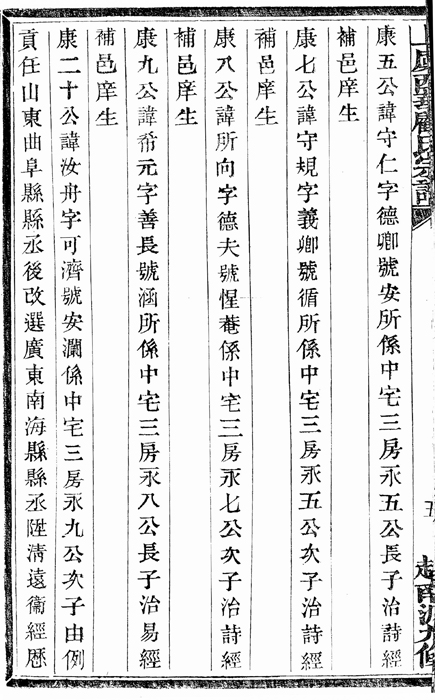 康五公諱守仁字德卿號安所係中宅三房永五公長子治詩經
補邑庠生
康七公諱守規字義卿號循所係中宅三房永五公次子治詩經
補邑庠生
康八公諱所向字德夫號惺菴係中宅三房永七公次子治詩經
補邑庠生
康九公諱希元字善長號涵所係中宅三房永八公長子治易經
補邑庠生
康二十公諱汝舟字可濟號安瀾係中宅三房永九公次子由例
貢任山東曲阜縣縣丞後改選廣東南海縣縣丞陞清遠衞經歷